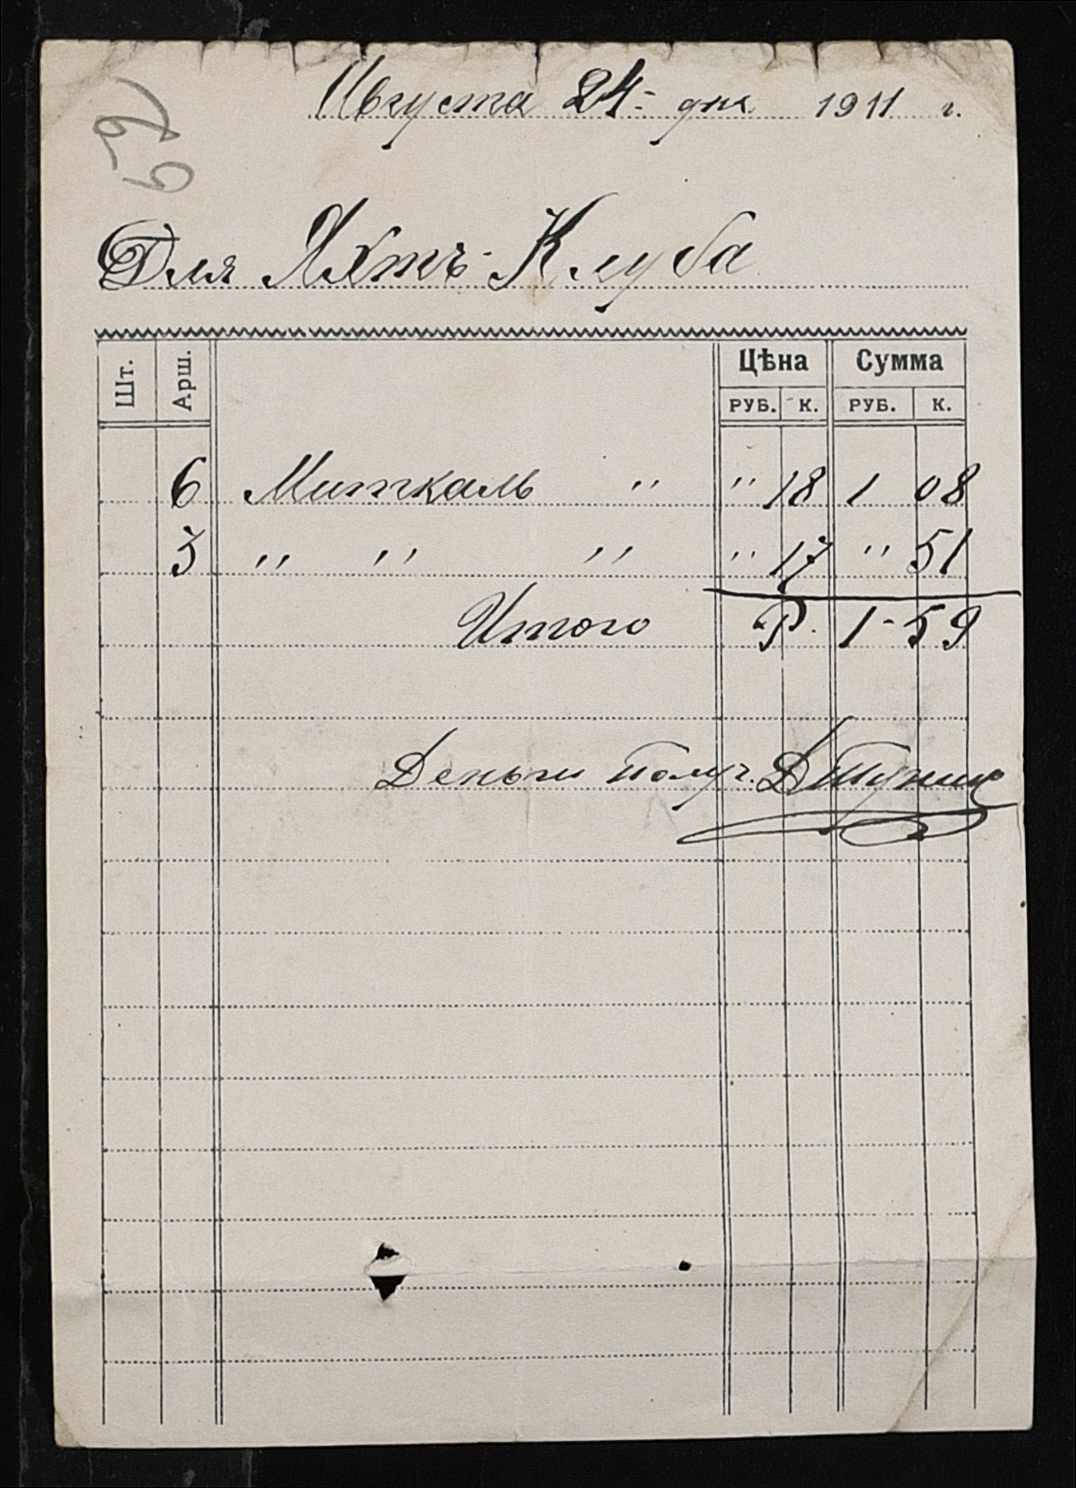 Августа 24 дня 1911 г.
69
Для Яхтъ-Клуба
Шт. Арш. Цѣна Сумма
РУБ. К. РУБ. К.
6 Миткаль " " 18 1 08
3 " " " " 17 " 51
Итого Р. 1-59
Деньги получ.